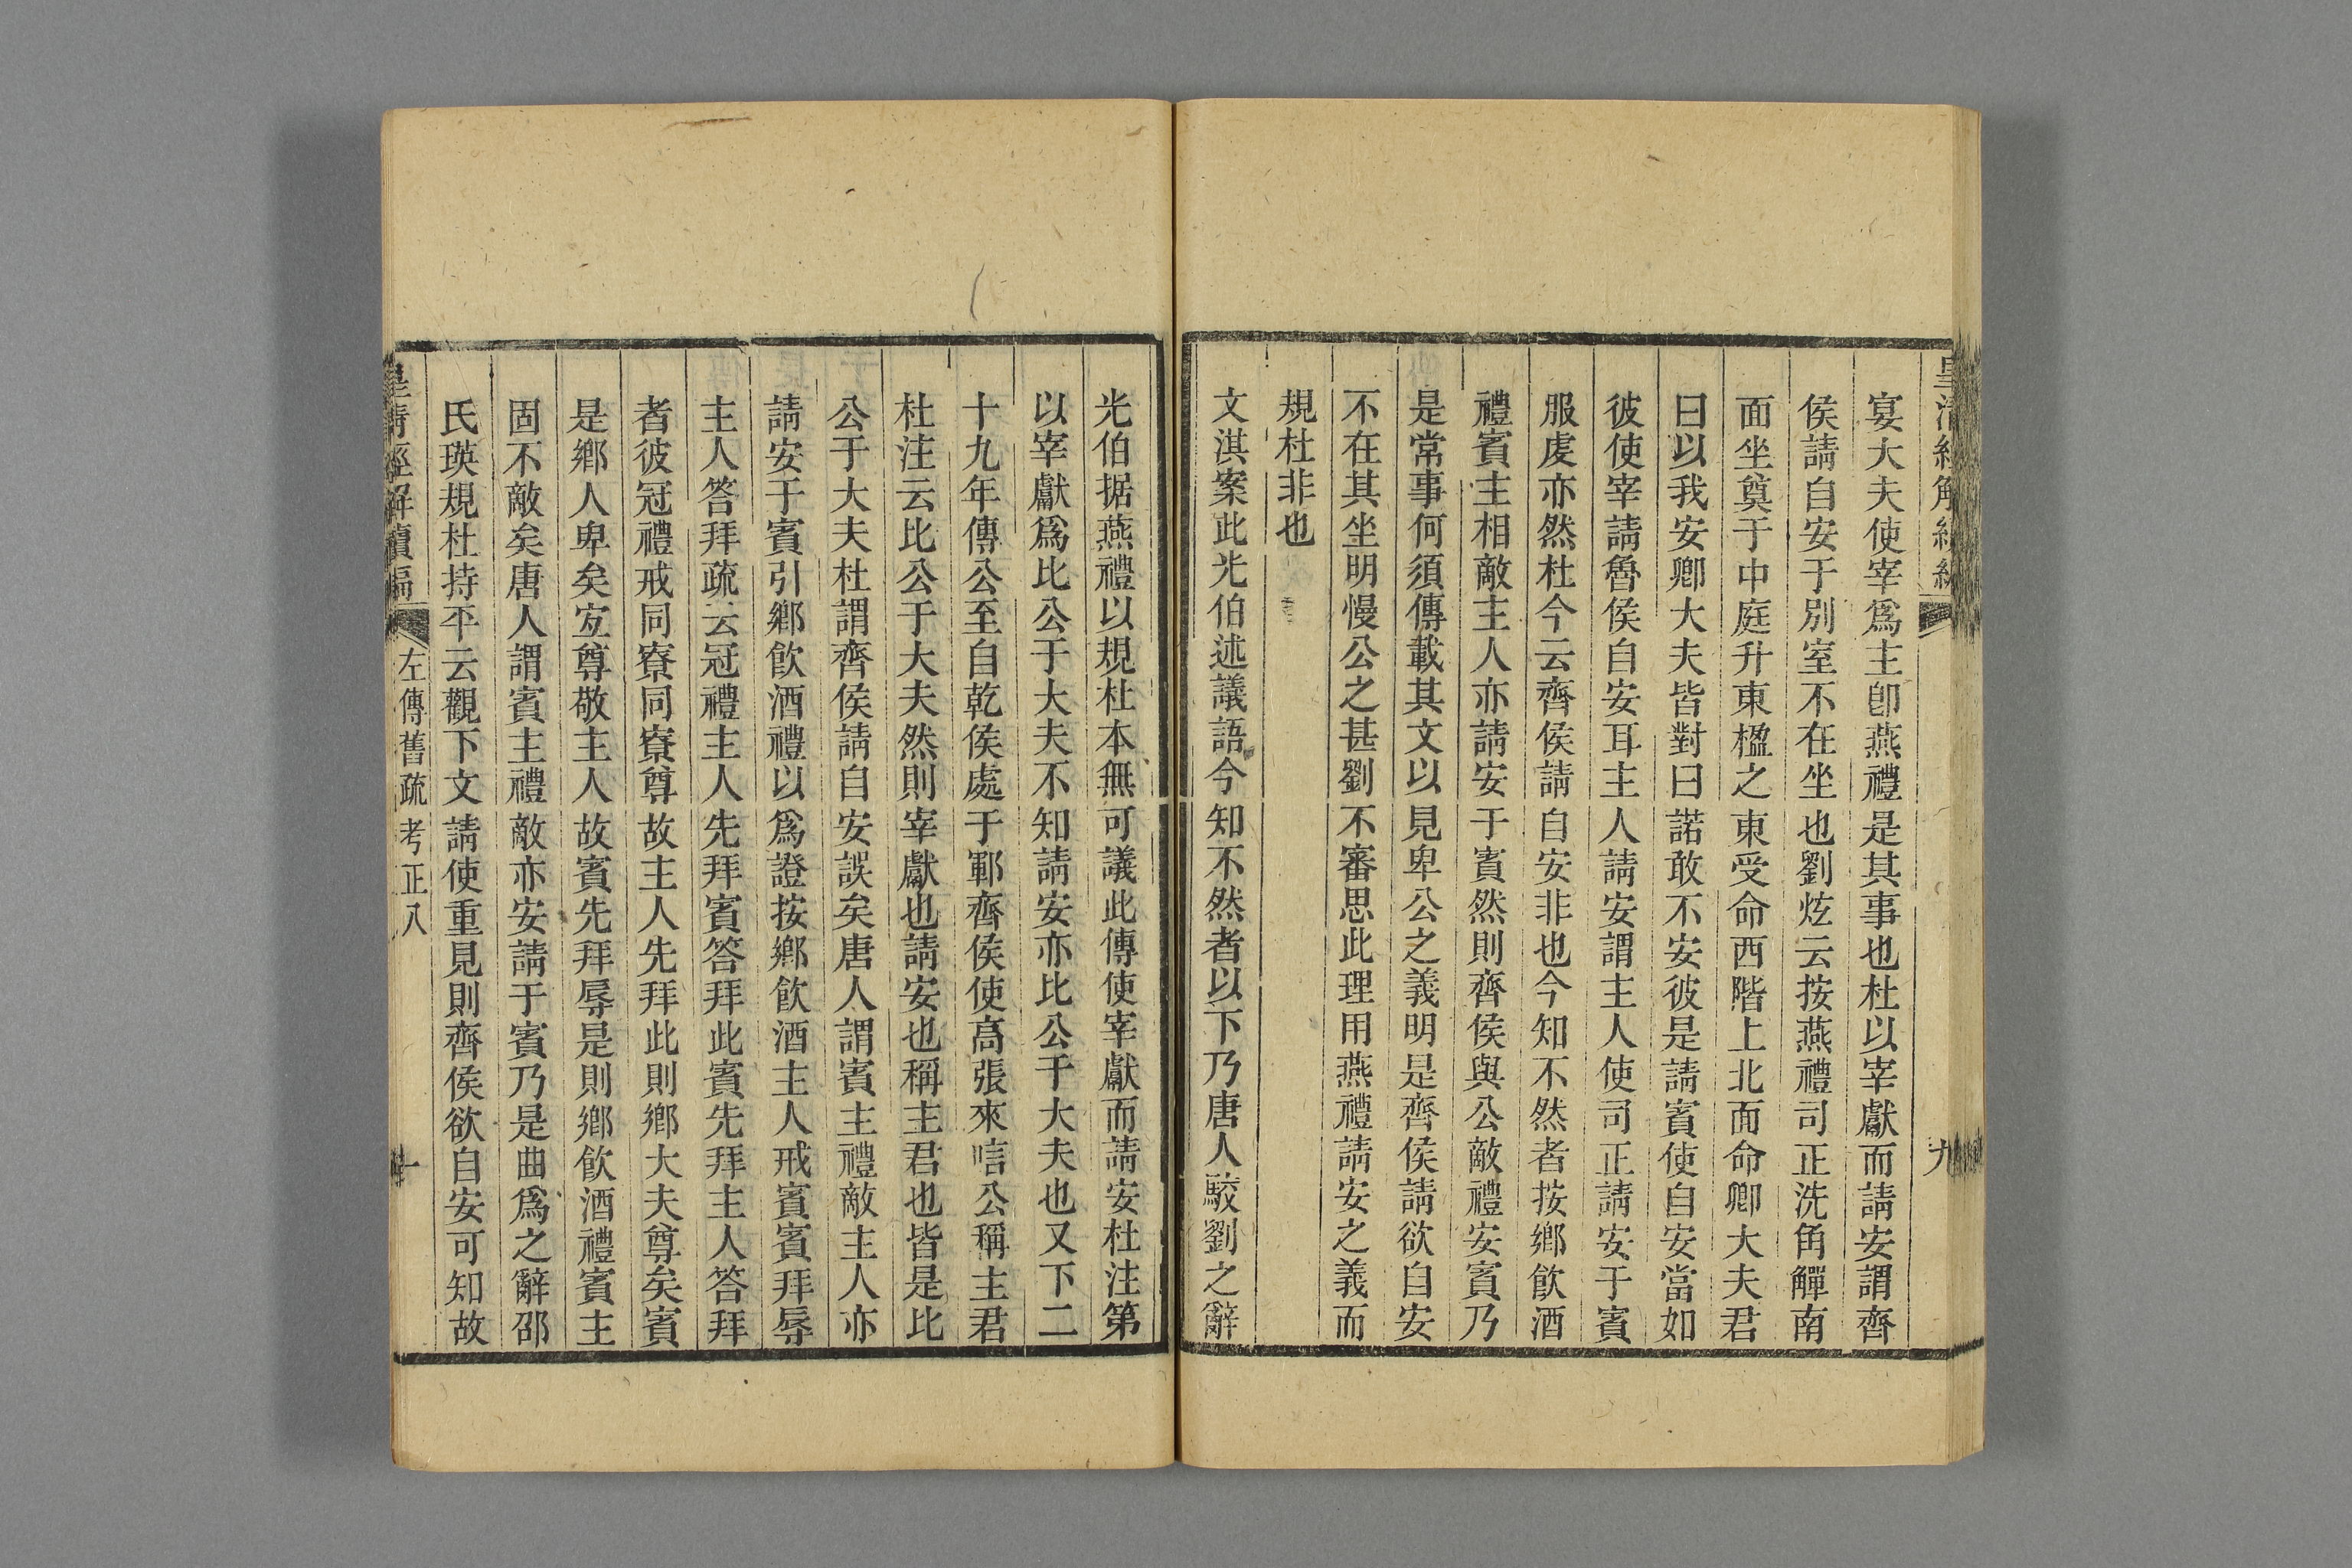 宴大夫使宰爲主卽燕禮是其事也杜以宰獻而請安謂齊
侯請自安于別室不在坐也劉炫云按燕禮司正洗角觶南
面坐奠于中庭升東楹之東受命西階上北面命卿大夫君
曰以我安卿大夫皆對曰諾敢不安彼是請賓使自安當如
彼使宰請魯侯自安耳主人請安謂主人使司正請安于賓
服虔亦然杜今云齊侯請自安非也今知不然者按鄉飮酒
禮賓主相敵主人亦請安于賓然則齊侯與公敵禮安賓乃
是常事何須傳載其文以見卑公之義明是齊侯請欲自安
不在其坐明慢公之甚劉不審思此理用燕禮請安之義而
規杜非也
文淇案此光伯述議語今知不然者以下乃唐人駁劉之辭
光伯据燕禮以規杜本無可議此傳使宰獻而請安杜注第
以宰獻爲比公于大夫不知請安亦比公于大夫也又下二
十九年傳公至自乾侯處于鄆齊侯使高張來唁公稱主君
杜注云比公于大夫然則宰獻也請安也稱主君也皆是比
公于大夫杜謂齊侯請自安誤矣唐人謂賓主禮敵主人亦
請安于賓引鄉飮酒禮以爲證按鄉飮酒主人戒賓賓拜辱
主人答拜疏云冠禮主人先拜賓答拜此賓先拜主人答拜
者彼冠禮戒同寮同寮尊故主人先拜此則鄉大夫尊矣賓
是鄉人卑矣宐尊敬主人故賓先拜辱是則鄉飮酒禮賓主
固不敵矣唐人謂賓主禮敵亦安請于賓乃是曲爲之辭邵
氏瑛規杜持平云觀下文請使重見則齊侯欲自安可知故
左傳舊疏考正八